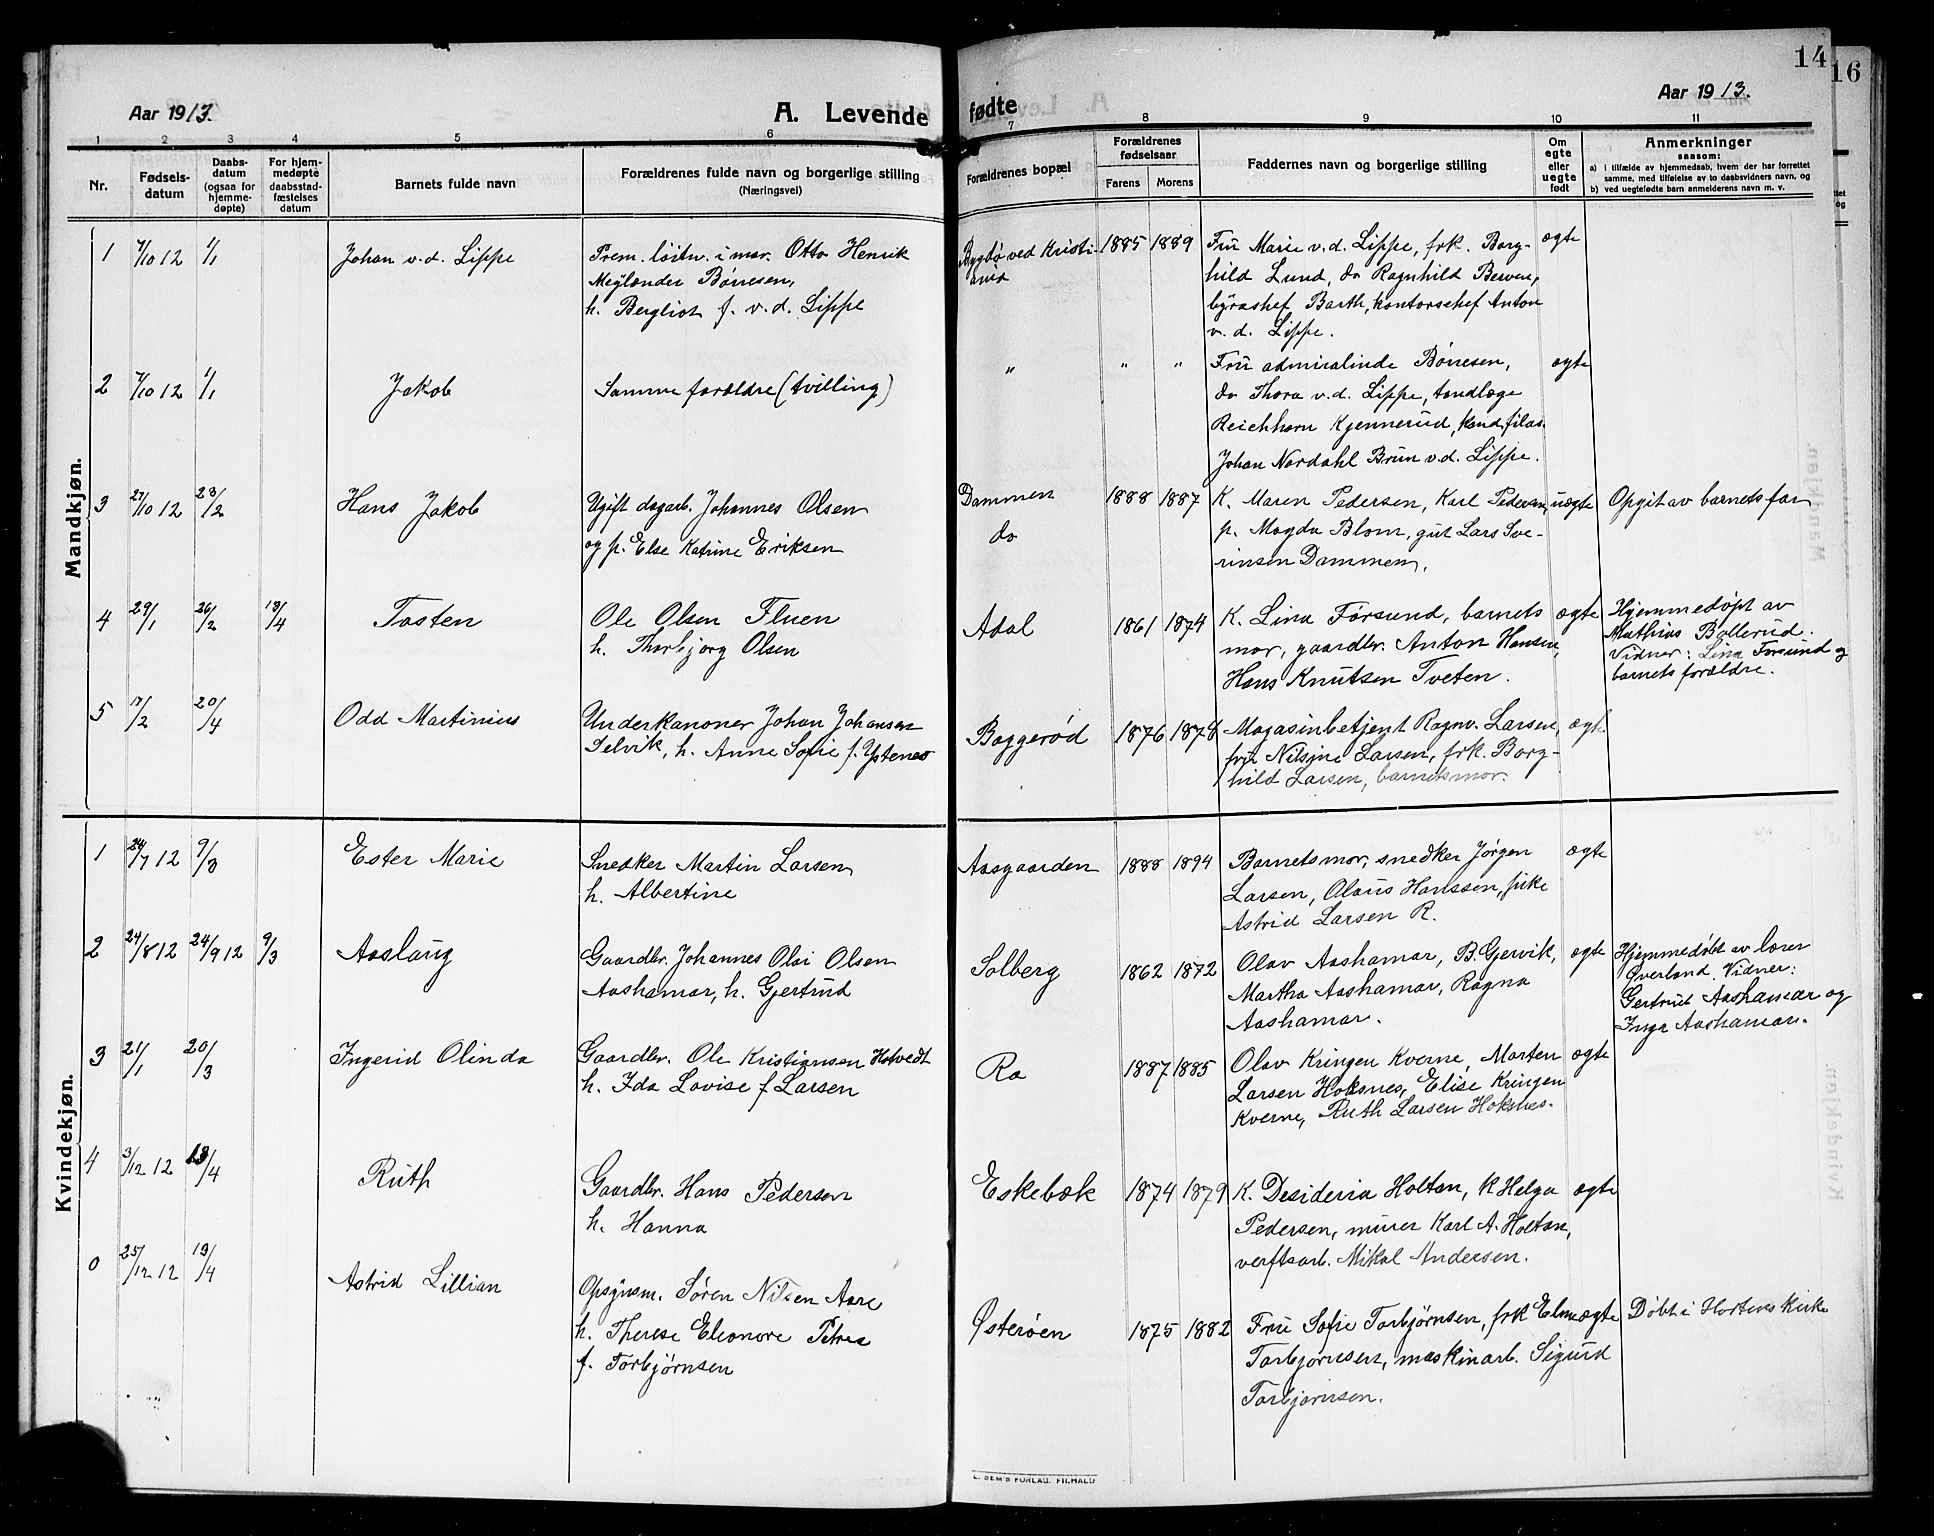 14
16
Aar 1913.
A. Levende fødte
Aar 1913.
1 2 3 4 5 6 7 8 9 10 11
Nr.
Fødsels-
datum
Daabs-
datum
(ogsaa for
hjemme-
døpte)
For hjem-
medøpte
daabsstad-
fæstelses
datum
Barnets fulde navn
Forældrenes fulde navn og borgerlige stilling
(Næringsvei)
Forældrenes bopæl
Forældrenes
fødselsaar
Farens Morens
Faddernes navn og borgerlige stilling
Om
egte
eller
uegte
født
Anmerkninger
saasom:
a) i tilfælde av hjemmedaab, hvem der har forrettet
samme, med tilføielse av to daabsvidners navn, og
b) ved uegtefødte barn anmelderens navn m. v.
Mandkjøn.
1 7/10 12 1/1 Johan v.d. Lippe
Prem. løitn. i mar. Otto Henrik
Meylænder Børresen,
h. Bergliot f. v.d. Lippe
Bygdø ved Kristi-
ania
1885 1889
Fru Marie v.d. Lippe, frk. Borg-
hild Lund, do Ragnhild Berven,
byråshef Barth, kontorschef Anton
v. d. Lippe.
egte
2 7/10 12 1/1 Jakob
Samme forældre (tvilling)
" " "
Fru admiralinde Børresen,
do Thora v.d. Lippe, tandlæge
Reichborn Kjennerud, kand. filos.
Johan Nordahl Brun v.d. Lippe.
egte
3 27/10 12 23/2 Hans Jakob
Ugift dagarb. Johannes Olsen
og p. Else Katrine Eriksen
Dammen
do
1888 1887
K. Maren Pedersen, Karl Pedersen,
p. Magda Blom, gut Lars Sve-
rinsen Dammen.
uegte
Opgit av barnets far
4 29/1 26/2 13/4 Tosten
Ole Olsen Fluen
h. Thorbjørg Olsen
Adal
1861 1874
K. Lina Førsund, barnets
mor, gaardbr. Anton Hansen,
Hans Knutsen Tveten.
egte
Hjemmedøpt av
Mathias Bollerud.
Vidner: Lina Førsund og
barnets forældre.
5 17/2 20/4 Odd Martinius
Underkanoner Johan Johansen
Selvik, h. Anne Sofie f. Ystenes
Baggerød
1876 1874
Magasinbetjent Ragnv. Larsen,
frk Nilsine Larsen, frk. Borg-
hild Larsen, barnets mor.
egte
Kvindekjøn.
1 24/7 12 9/3 Ester Marie
Snedker Martin Larsen
h. Albertine
Aasgaarden
1888 1894
Barnets mor, snedker Jørgen
Larsen, Olaus Hanssen, pike
Astrid Larsen R.
egte
2 24/8 12 24/9 12 9/3 Aaslaug
Gaardbr. Johannes Olai Olsen
Aashamar, h. Gjertrud
Solberg
1862 1872
Olav Aashamar, B. Gjervik,
Martha Aashamar, Ragna
Aashamar.
egte
Hjemmedøbt av lærer
Øverland. Vidner:
Gertrud Aashamar og
Inga Aashamar.
3 21/1 20/3 Ingerid Olinda
Gaardbr. Ole Kristiansen Hotvedt
h. Ida Lovise f Larsen
Ra
1887 1885
Olav Kringen Kverne, Marten
Larsen Hoksnes, Elise Kringen
Kverne, Ruth Larsen Hoksnes.
egte
4 3/12 12 13/4 Ruth
Gaardbr. Hans Pedersen
h. Hanna
Eskebæk
1874 1879
K. Desideria Holtan, K Helga
Pedersen, murer Karl A. Holtan,
verftsarb. Mikal Andersen.
egte
0 25/12 12 19/4 Astrid Lillian
Opsynsm. Søren Nilsen Aare
h. Therese Eleonore Petrea
f. Torbjørnsen
Østerøen
1875 1882
Fru Sofie Torbjørnsen, frk Elna
Torbjørnsen, maskinarb. Sigurd
Torbjørnsen.
egte
Døbt i Hortens kirke
E. SEM'S FORLAG. FR.HALD